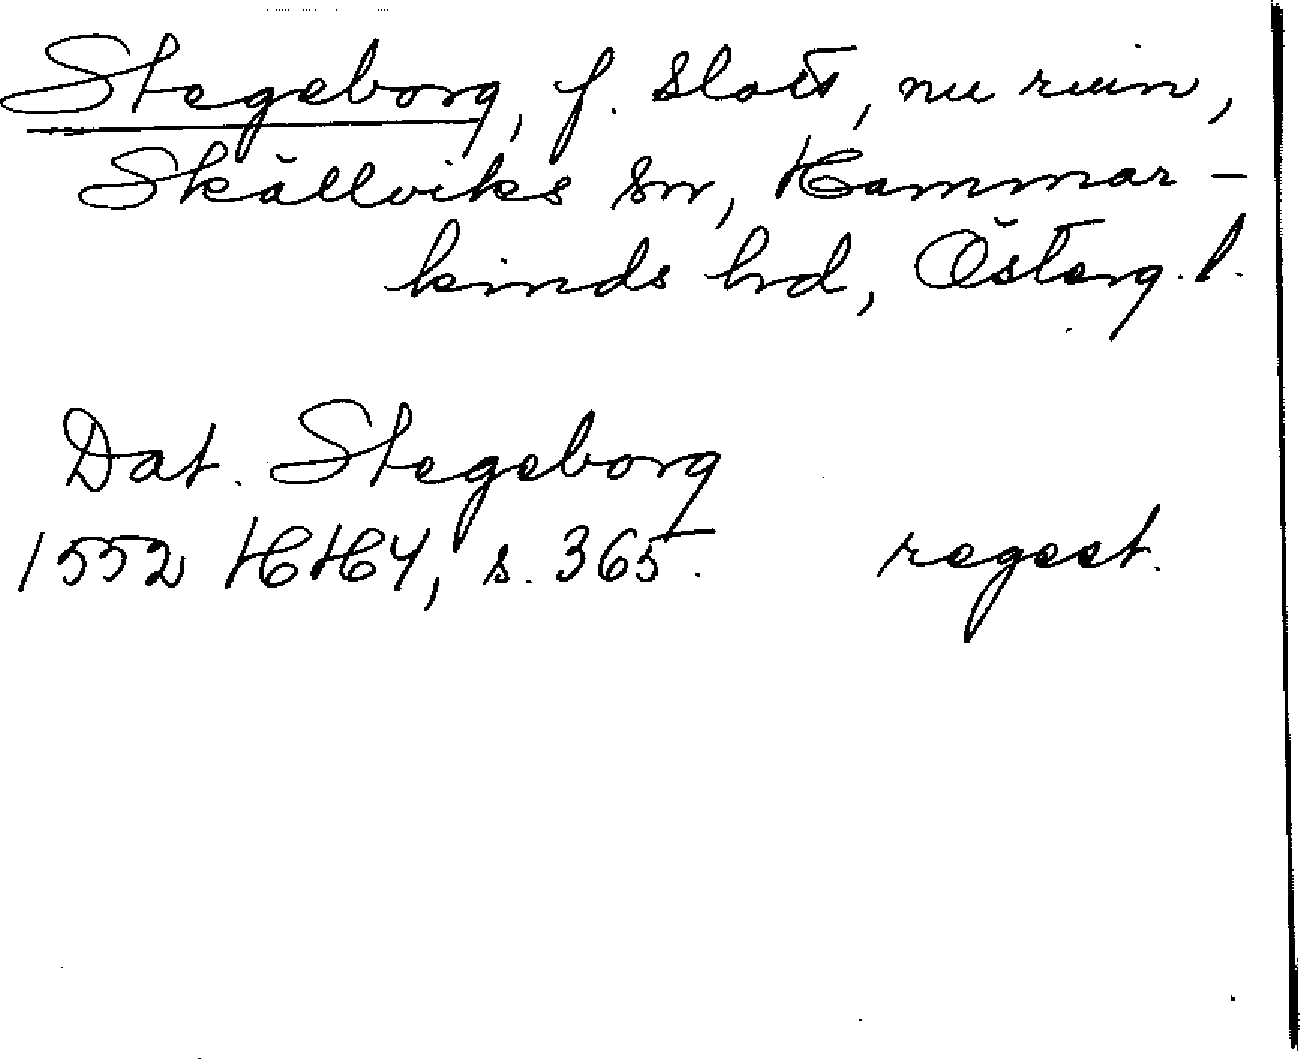 Stegeborg, f. slott, nu ruin,
Skällviks sn, Hammar-
kinds hd, Österg. l.
Dat. Stegeborg
1552 HH4, s. 365. regest.